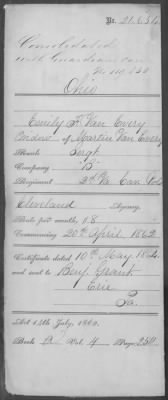 No. 21.634
Consolidated
with Guardians case
No 119,430
Ohio
Emily F. Van Every
Widow of Martin Van Every
Rank Sergt
Company "B"
Regiment 2d Va Cav Vols
Cleveland Agency
Rate per month, $ 8
Commencing 20th April 1862
Certificate dated 10th May 1864
and sent to Benj. Grant
Erie
Pa.
Act 14th July, 1862.
Book D Vol. 4 Page 250